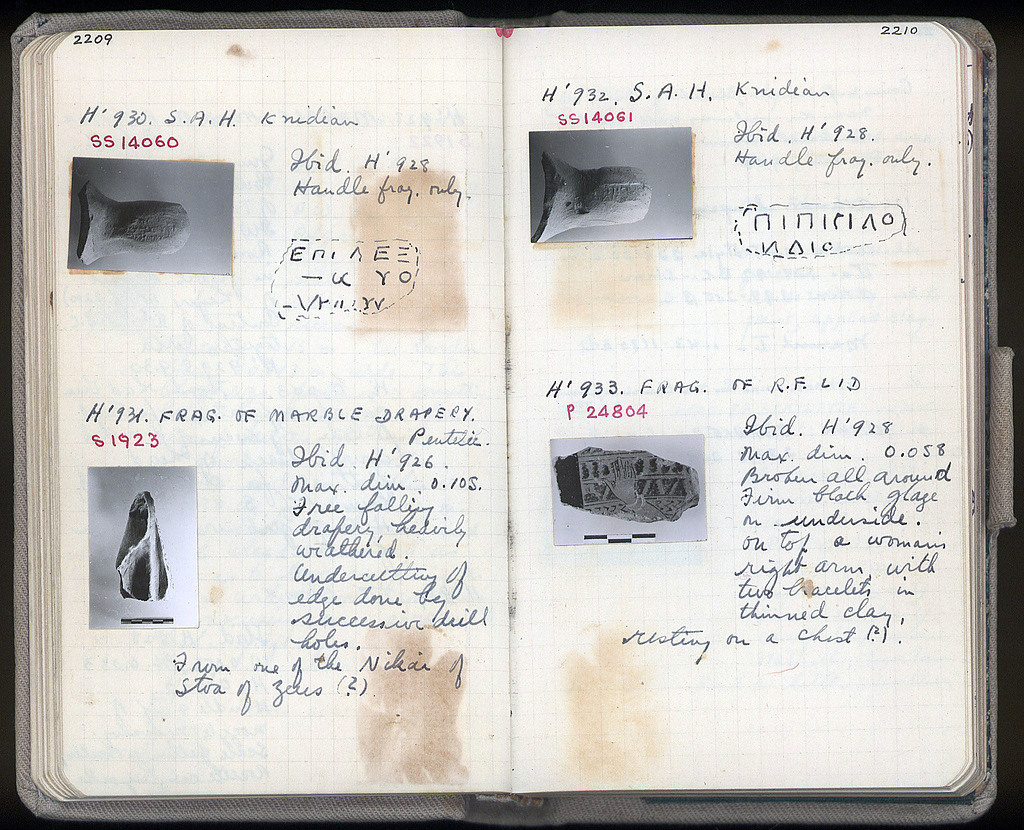 2209
H' 930. S.A.H. Knidian
SS 14060
Ibid. H' 928
Handle frag. only.
ΕΠΙ ΛΕΞ
Υ Ο
H' 931. FRAG. OF MARBLE DRAPERY.
S 1923
Pentelic.
Ibid. H' 926.
Max. dim. 0.105.
Free falling
drapery, heavily
weathered.
Undercutting of
edge done by
successive drill
holes.
From one of the Nikai of
Stoa of Zeus (?)
2210
H' 932. S.A.H. Knidian
SS 14061
Ibid. H' 928.
Handle frag. only.
H' 933. FRAG. OF R.F. LID
P 24804
Ibid. H' 928
Max. dim. 0.058
Broken all around
Firm black glaze
on underside.
On top a woman's
right arm with
two bracelets in
thinned clay,
resting on a chest (?).